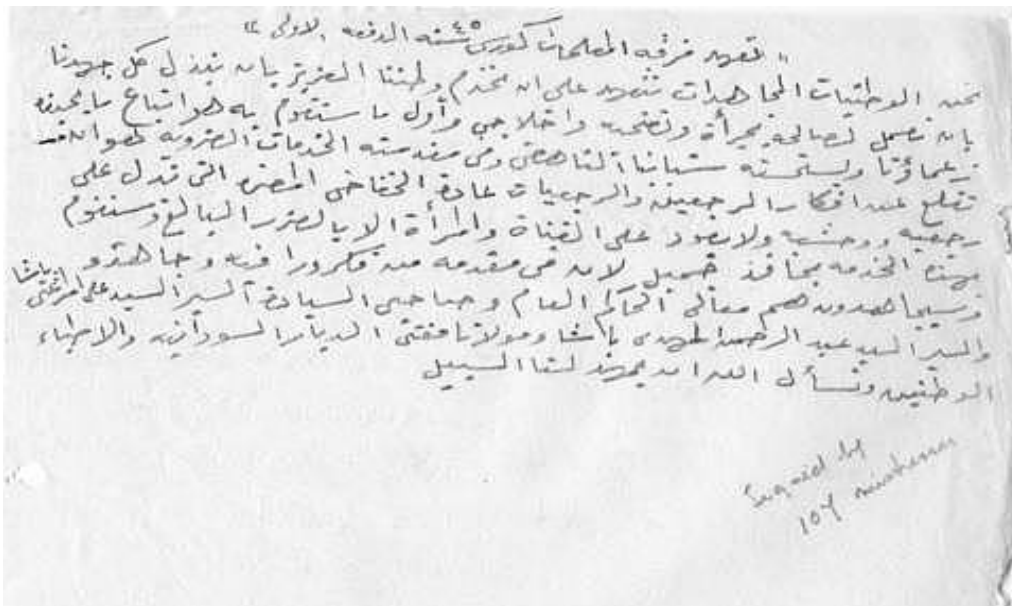 « تعهد فرقة المعلمات كورس سنة ٤٥ الدفعة الاولى »
نحن الوطنيات المجاهدات نتعهد على ان نخدم وطننا العزيز بان نبذل كل جهدنا
بان نعمل لصالحه بجرأة وتضحيه واخلاص وأول ما سنقوم به هو اتباع ما يحبذه
زعماؤنا ويستحسنه شبابنا الناهض وفى مقدمته الخدمات الضروريه وهو ان
نقلع عن افكار الرجعيين والرجعيات عادة الخفاض المضره التى تدل على
رجعيه ووحشيه ولا يعود على الفتاة والمرأة الا بالضرر البالغ وسنقوم
بهذه الخدمه لان فى مقدمه من فكروا فيه وجاهدوا
وسيجاهدون هم معالى الحاكم العام وصاحبى السيادة السير السيد على المرغنى باشا
والسير السيد عبد الرحمن المهدى باشا ومولانا مفتى الديار السودانيه والاطباء
الوطنيين ونسأل الله ان يمهد لنا السبيل
Signed by
107 women